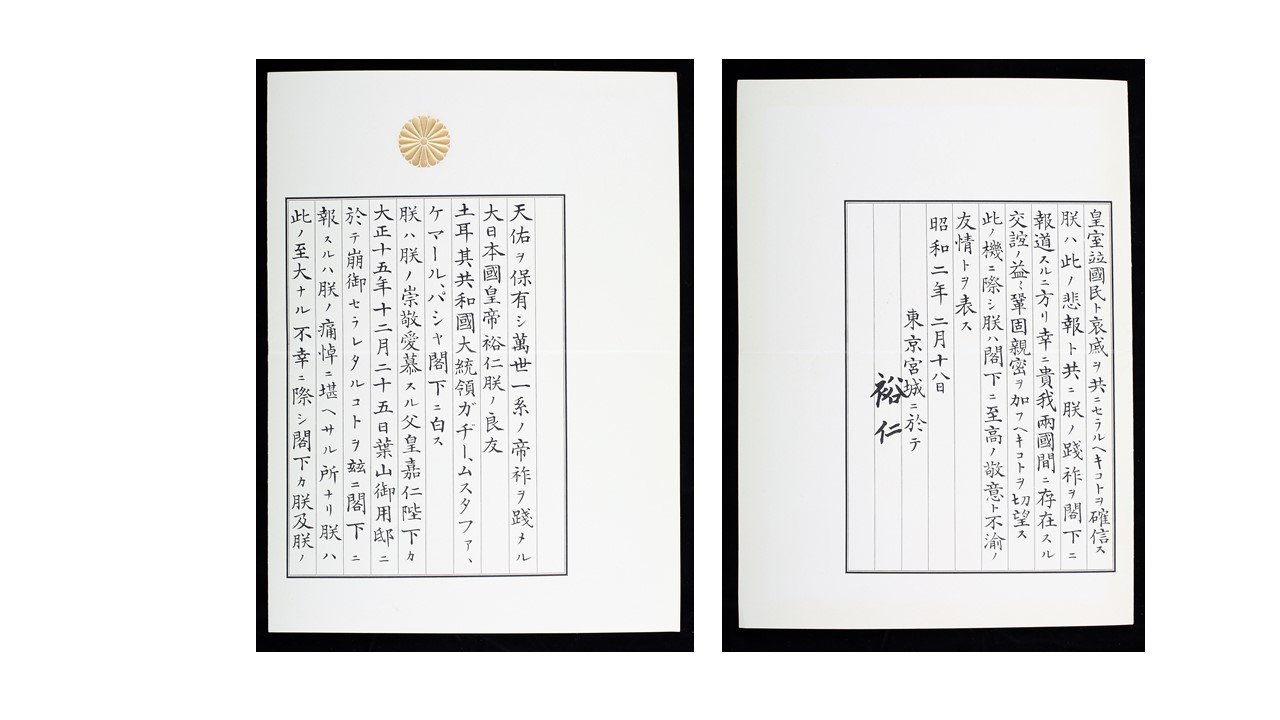 天佑ヲ保有シ萬世一系ノ帝祚ヲ踐メル
大日本國皇帝裕仁朕ノ良友
土耳其共和國大統領ガヂー、ムスタファ、
ケマール、パシャ閣下ニ白ス
朕ハ朕ノ崇敬愛慕スル父皇嘉仁陛下カ
大正十五年十二月二十五日葉山御用邸ニ
於テ崩御セラレタルコトヲ玆ニ閣下ニ
報スルハ朕ノ痛悼ニ堪ヘサル所ナリ朕ハ
此ノ至大ナル不幸ニ際シ閣下カ朕及朕ノ
皇室竝國民ト哀戚ヲ共ニセラルヘキコトヲ確信ス
朕ハ此ノ悲報ト共ニ朕ノ踐祚ヲ閣下ニ
報道スルニ方リ幸ニ貴我兩國間ニ存在スル
交誼ノ益〻鞏固親密ヲ加フヘキコトヲ切望ス
此ノ機ニ際シ朕ハ閣下ニ至高ノ敬意ト不渝ノ
友情トヲ表ス
昭和二年二月十八日
東京宮城ニ於テ
裕仁